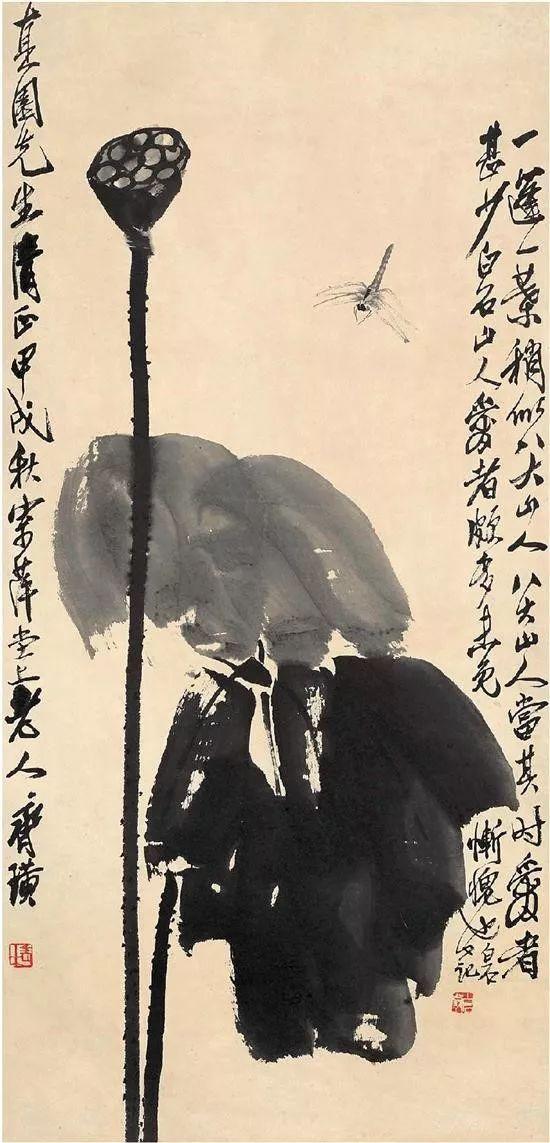 一蓬一葉稍似八大山人八大山人當其時愛者
甚少白石山人愛者頗多未免
慚愧也白石又記
園先生清正甲戌秋寄萍堂上老人齊璜